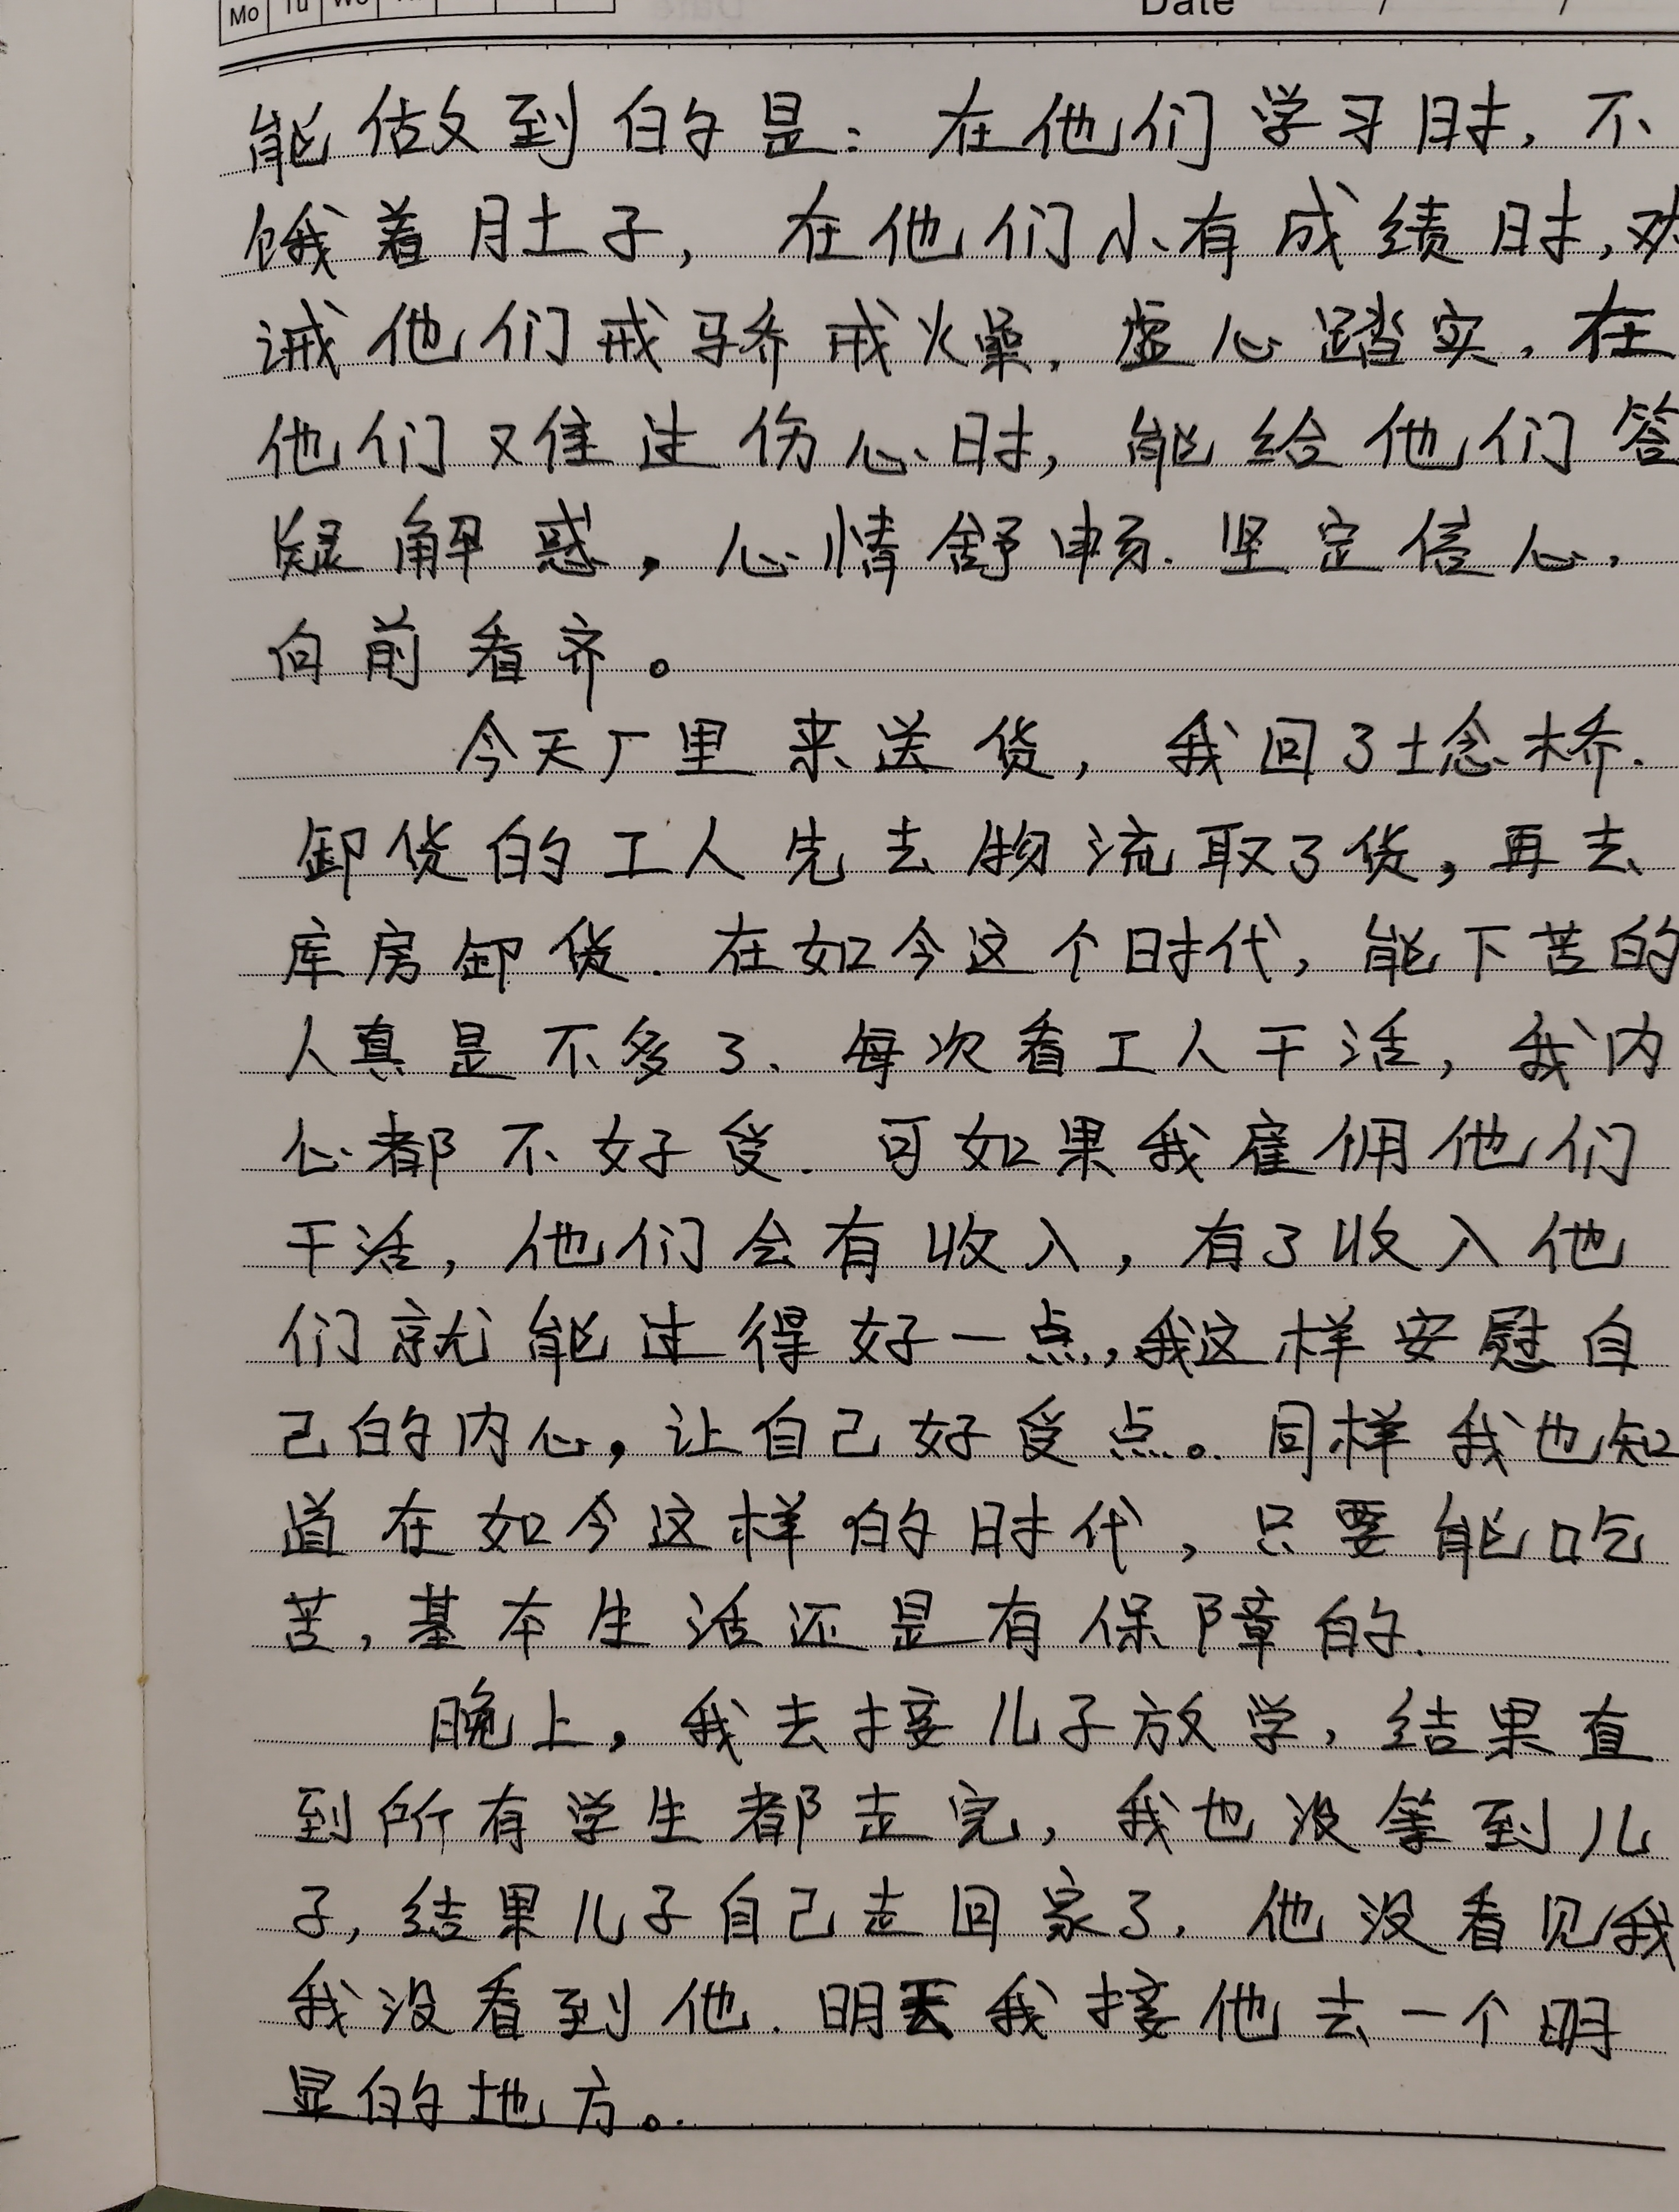 Mo Tu We Date / /
能做到的是：在他们学习时，不
饿着肚子，在他们小有成绩时，劝
诫他们戒骄戒燥，虚心踏实，在
他们难过伤心时，能给他们答
疑解惑，心情舒畅．坚定信心，
向前看齐。
今天厂里来送货，我回了埝桥．
卸货的工人先去物流取了货，再去
库房卸货．在如今这个时代，能下苦的
人真是不多了、每次看工人干活，我内
心都不好受．可如果我雇佣他们
干活，他们会有收入，有了收入他
们就能过得好一点，我这样安慰自
己的内心，让自己好受点。同样我也知
道在如今这样的时代，只要能吃
苦，基本生活还是有保障的．
晚上，我去接儿子放学，结果直
到所有学生都走完，我也没等到儿
子，结果儿子自己走回家了，他没看见我
我没看到他．明天我接他去一个明
显的地方。